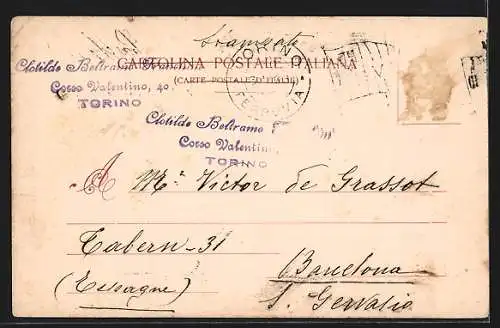 Stampato
CARTOLINA POSTALE ITALIANA
(CARTE POSTALE D'ITALIE)
Clotilde Beltramo
Corso Valentino, 40,
TORINO
TORINO
FERROVIA
Clotilde Beltramo
Corso Valentino
TORINO
A Mr. Victor de Grassot
Tabern-31
(Espagne)
Barcelona
S. Gervasio